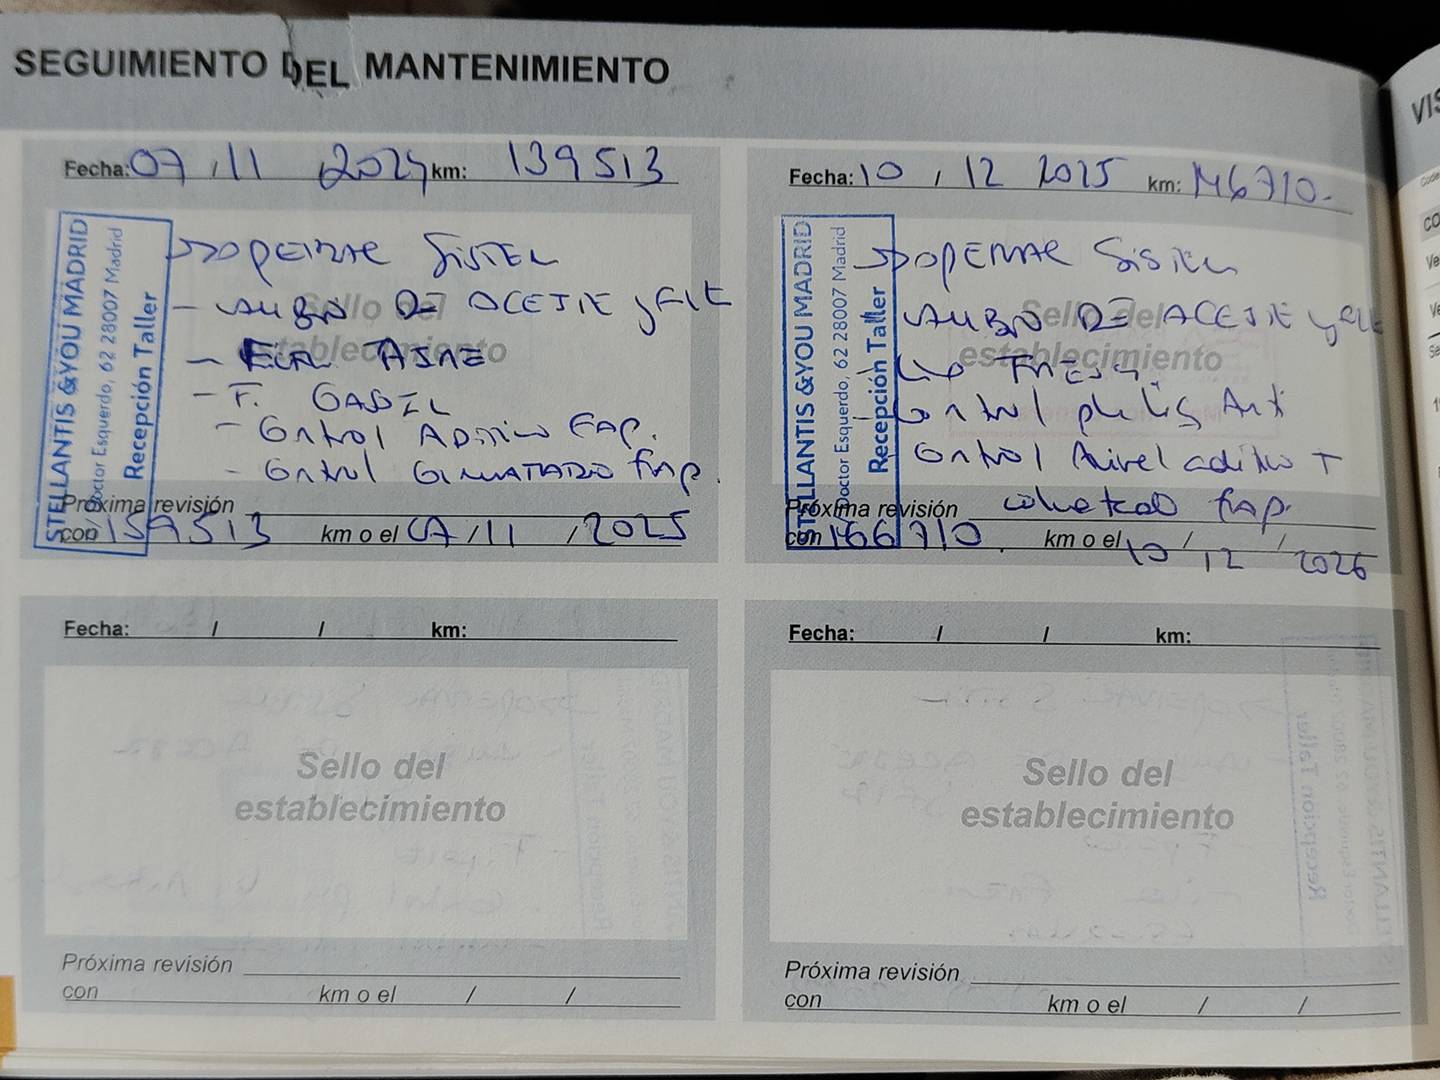 SEGUIMIENTO DEL MANTENIMIENTO
Fecha: 07 / 11 / 2024 km: 139513
STELLANTIS &YOU MADRID
Doctor Esquerdo, 62 28007 Madrid
Recepción Taller
Sello del
establecimiento
DE ACEITE y
- F. GASOIL
- Control ADITIVO FAP.
- Control COLMATADO FAP.
Próxima revisión
con 159513 km o el 07 / 11 / 2025
Fecha: 10 / 12 2025 km: 146710.
STELLANTIS &YOU MADRID
Doctor Esquerdo, 62 28007 Madrid
Recepción Taller
Sello del
establecimiento
DE ACEITE y
Control
Control Nivel aditivo +
Próxima revisión colmatado FAP.
con 166710. km o el 10 / 12 / 2026
Fecha: / / km:
Sello del
establecimiento
Próxima revisión
con km o el / /
Fecha: / / km:
Sello del
establecimiento
Próxima revisión
con km o el / /